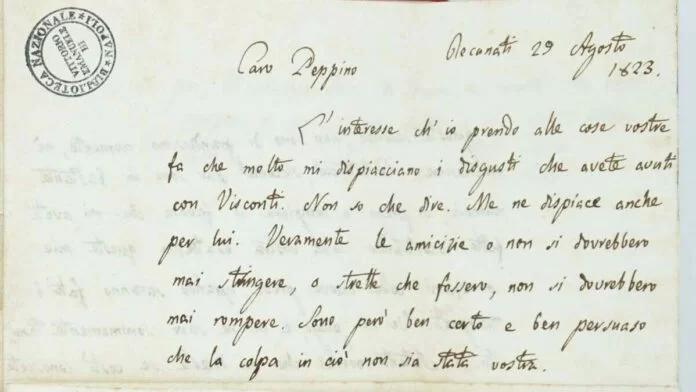 BIBLIOTECA NAZIONALE * NAPOLI *
VITTORIO
EMANUELE
III
Caro Peppino
Recanati 29 Agosto
1823.
L'interesse ch'io prendo alle cose vostre
fa che molto mi dispiacciano i disgusti che avete avuti
con Visconti. Non so che dire. Me ne dispiace anche
per lui. Veramente le amicizie o non si dovrebbero
mai stringere, o strette che fossero, non si dovrebbero
mai rompere. Sono però ben certo e ben persuaso
che la colpa in ciò non sia stata vostra.